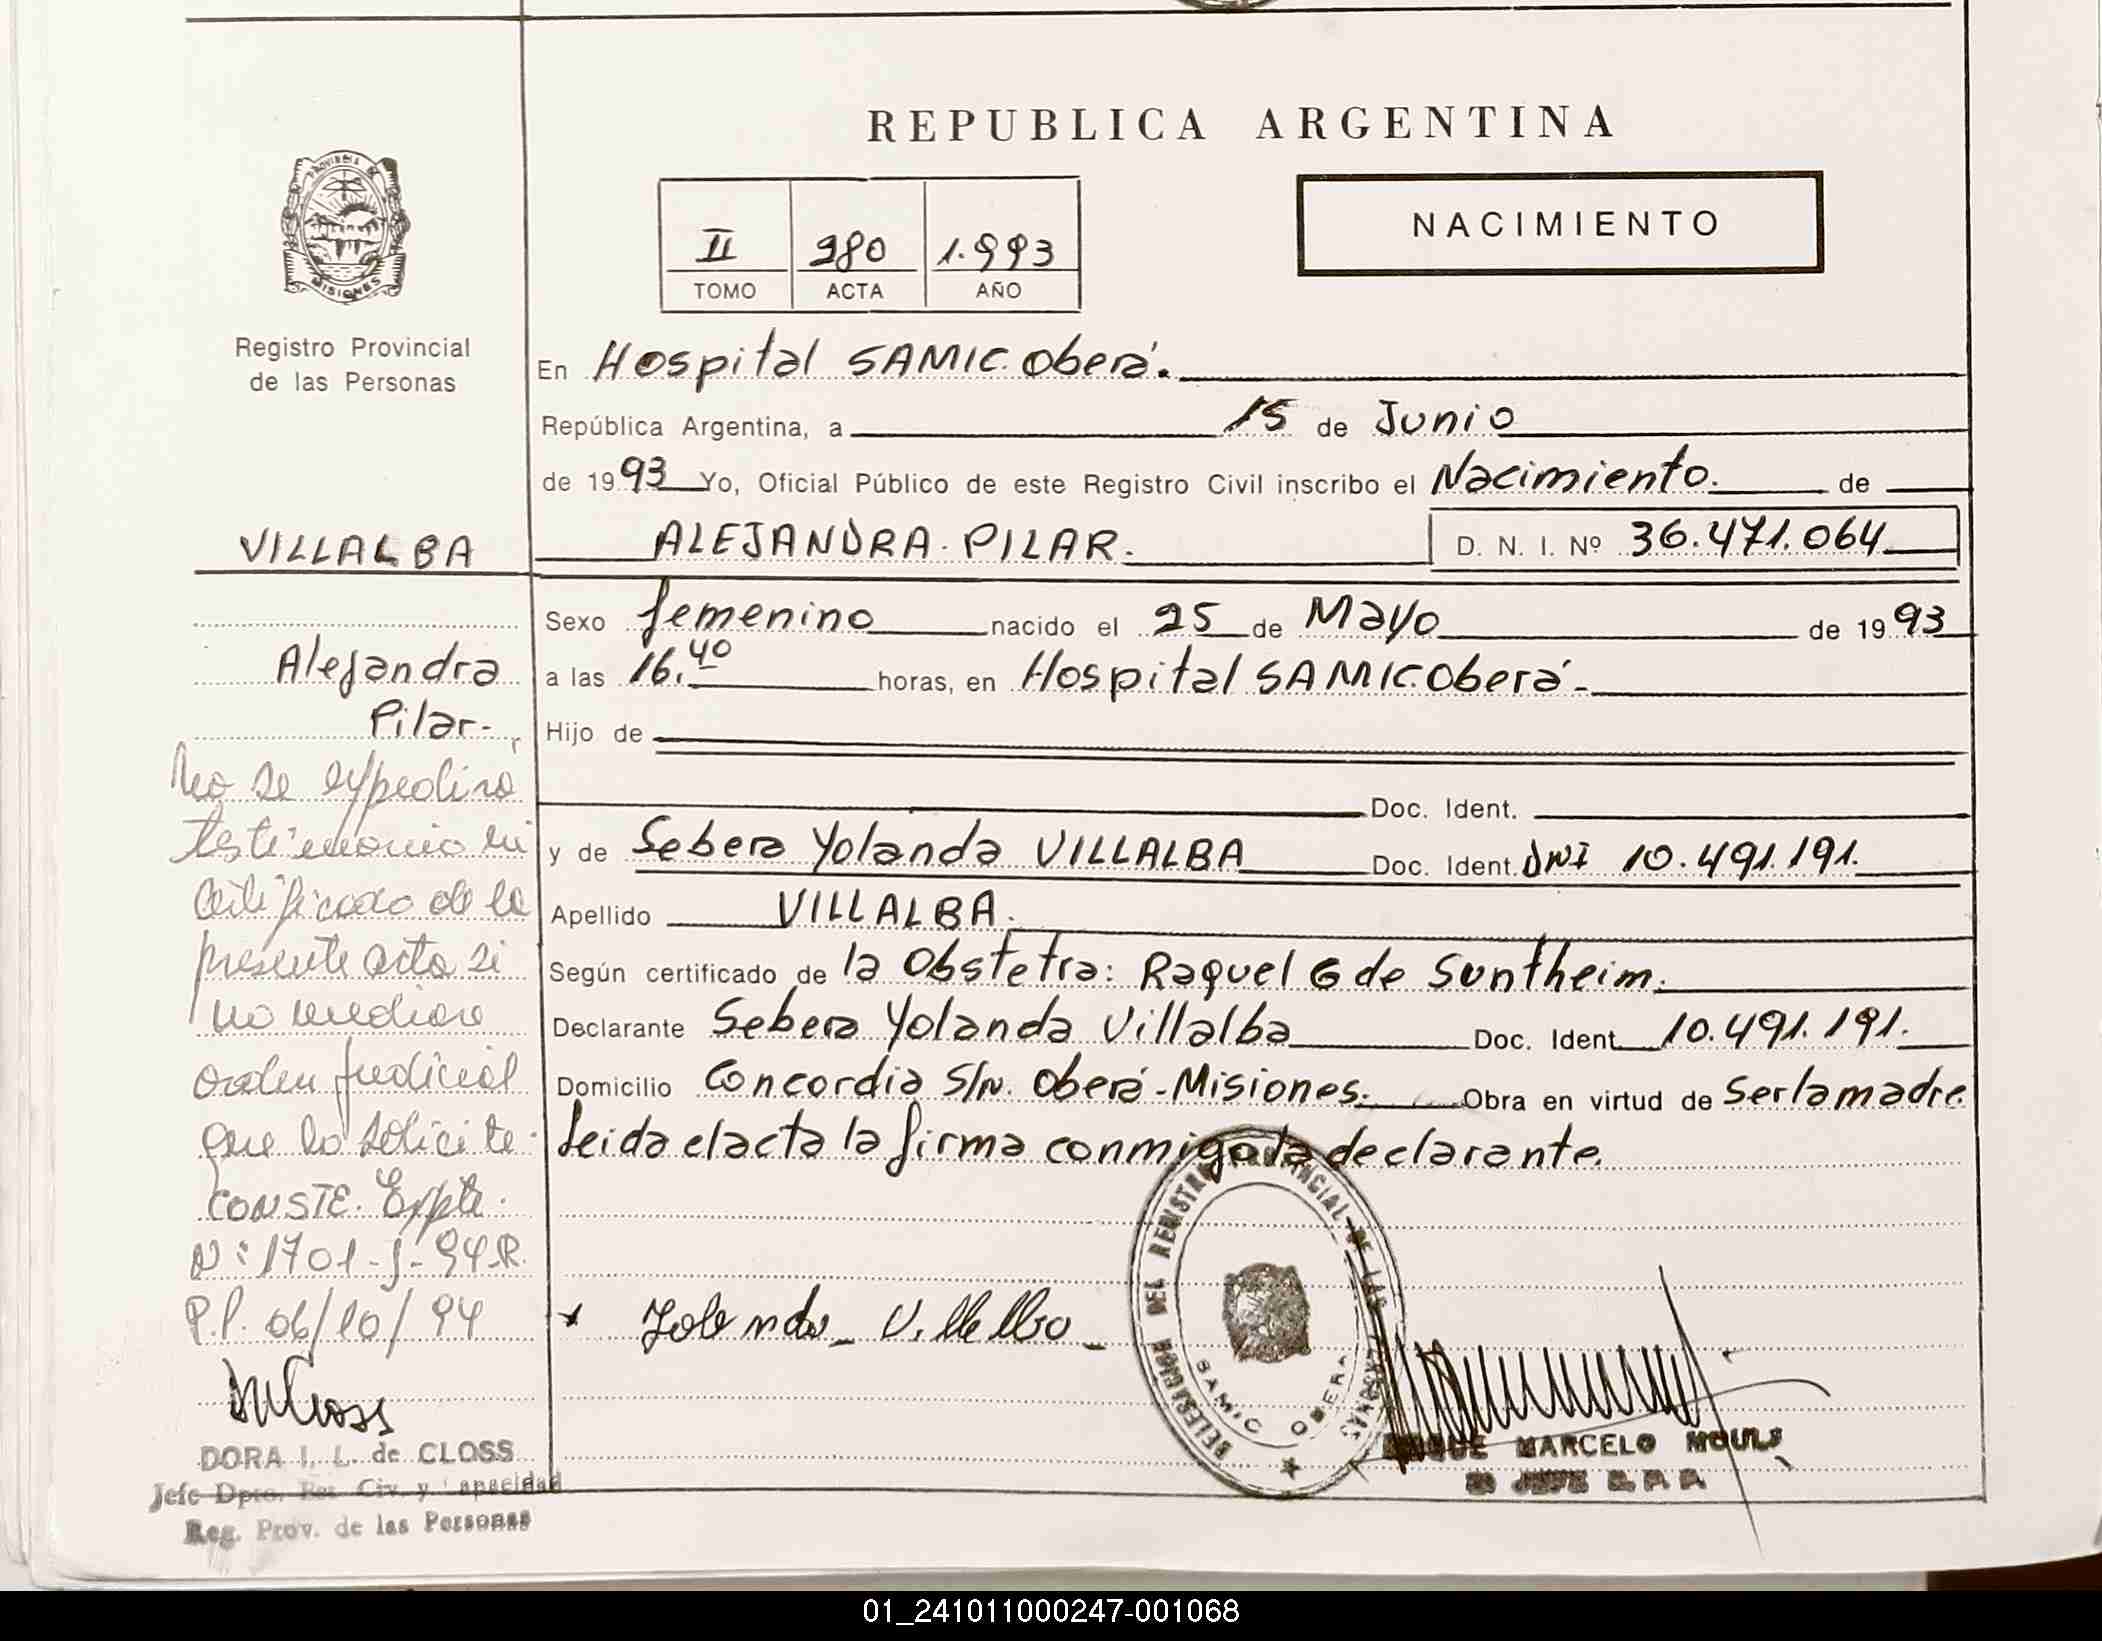 REPUBLICA ARGENTINA
PROVINCIA DE MISIONES
Registro Provincial
de las Personas
II 280 1.993
TOMO ACTA AÑO
NACIMIENTO
En Hospital SAMIC. Oberá.
República Argentina, a 15 de Junio
de 1993 Yo, Oficial Público de este Registro Civil inscribo el Nacimiento. de
VILLALBA
ALEJANDRA. PILAR. D. N. I. Nº 36.471.064
Sexo femenino nacido el 25 de Mayo de 1993
a las 16.40 horas, en Hospital SAMIC Oberá-
Hijo de
Doc. Ident.
y de Sebera Yolanda VILLALBA Doc. Ident. DNI 10.491.191.
Apellido VILLALBA.
Según certificado de la Obstetra: Raquel G de Suntheim.
Declarante Sebera Yolanda Villalba Doc. Ident 10.491.191.
Domicilio Concordia S/N. Oberá-Misiones. Obra en virtud de Ser la madre.
Leida el acta la firma conmigo la declarante.
Alejandra
Pilar-
No se expedira
testimonio ni
certificado de la
presente acta si
no mediare
orden judicial
que lo solicite.
CONSTE. Expte.
Nº 1701-J-94 R.
P.P. 06/10/94
DORA I. L. de CLOSS
Jefe Dpto. Est. Civ. y Capacidad
Reg. Prov. de las Personas
Yolanda Villalba
DELEGACION DEL REGISTRO PROVINCIAL DE LAS PERSONAS
SAMIC OBERA
MARCELO
01_241011000247-001068